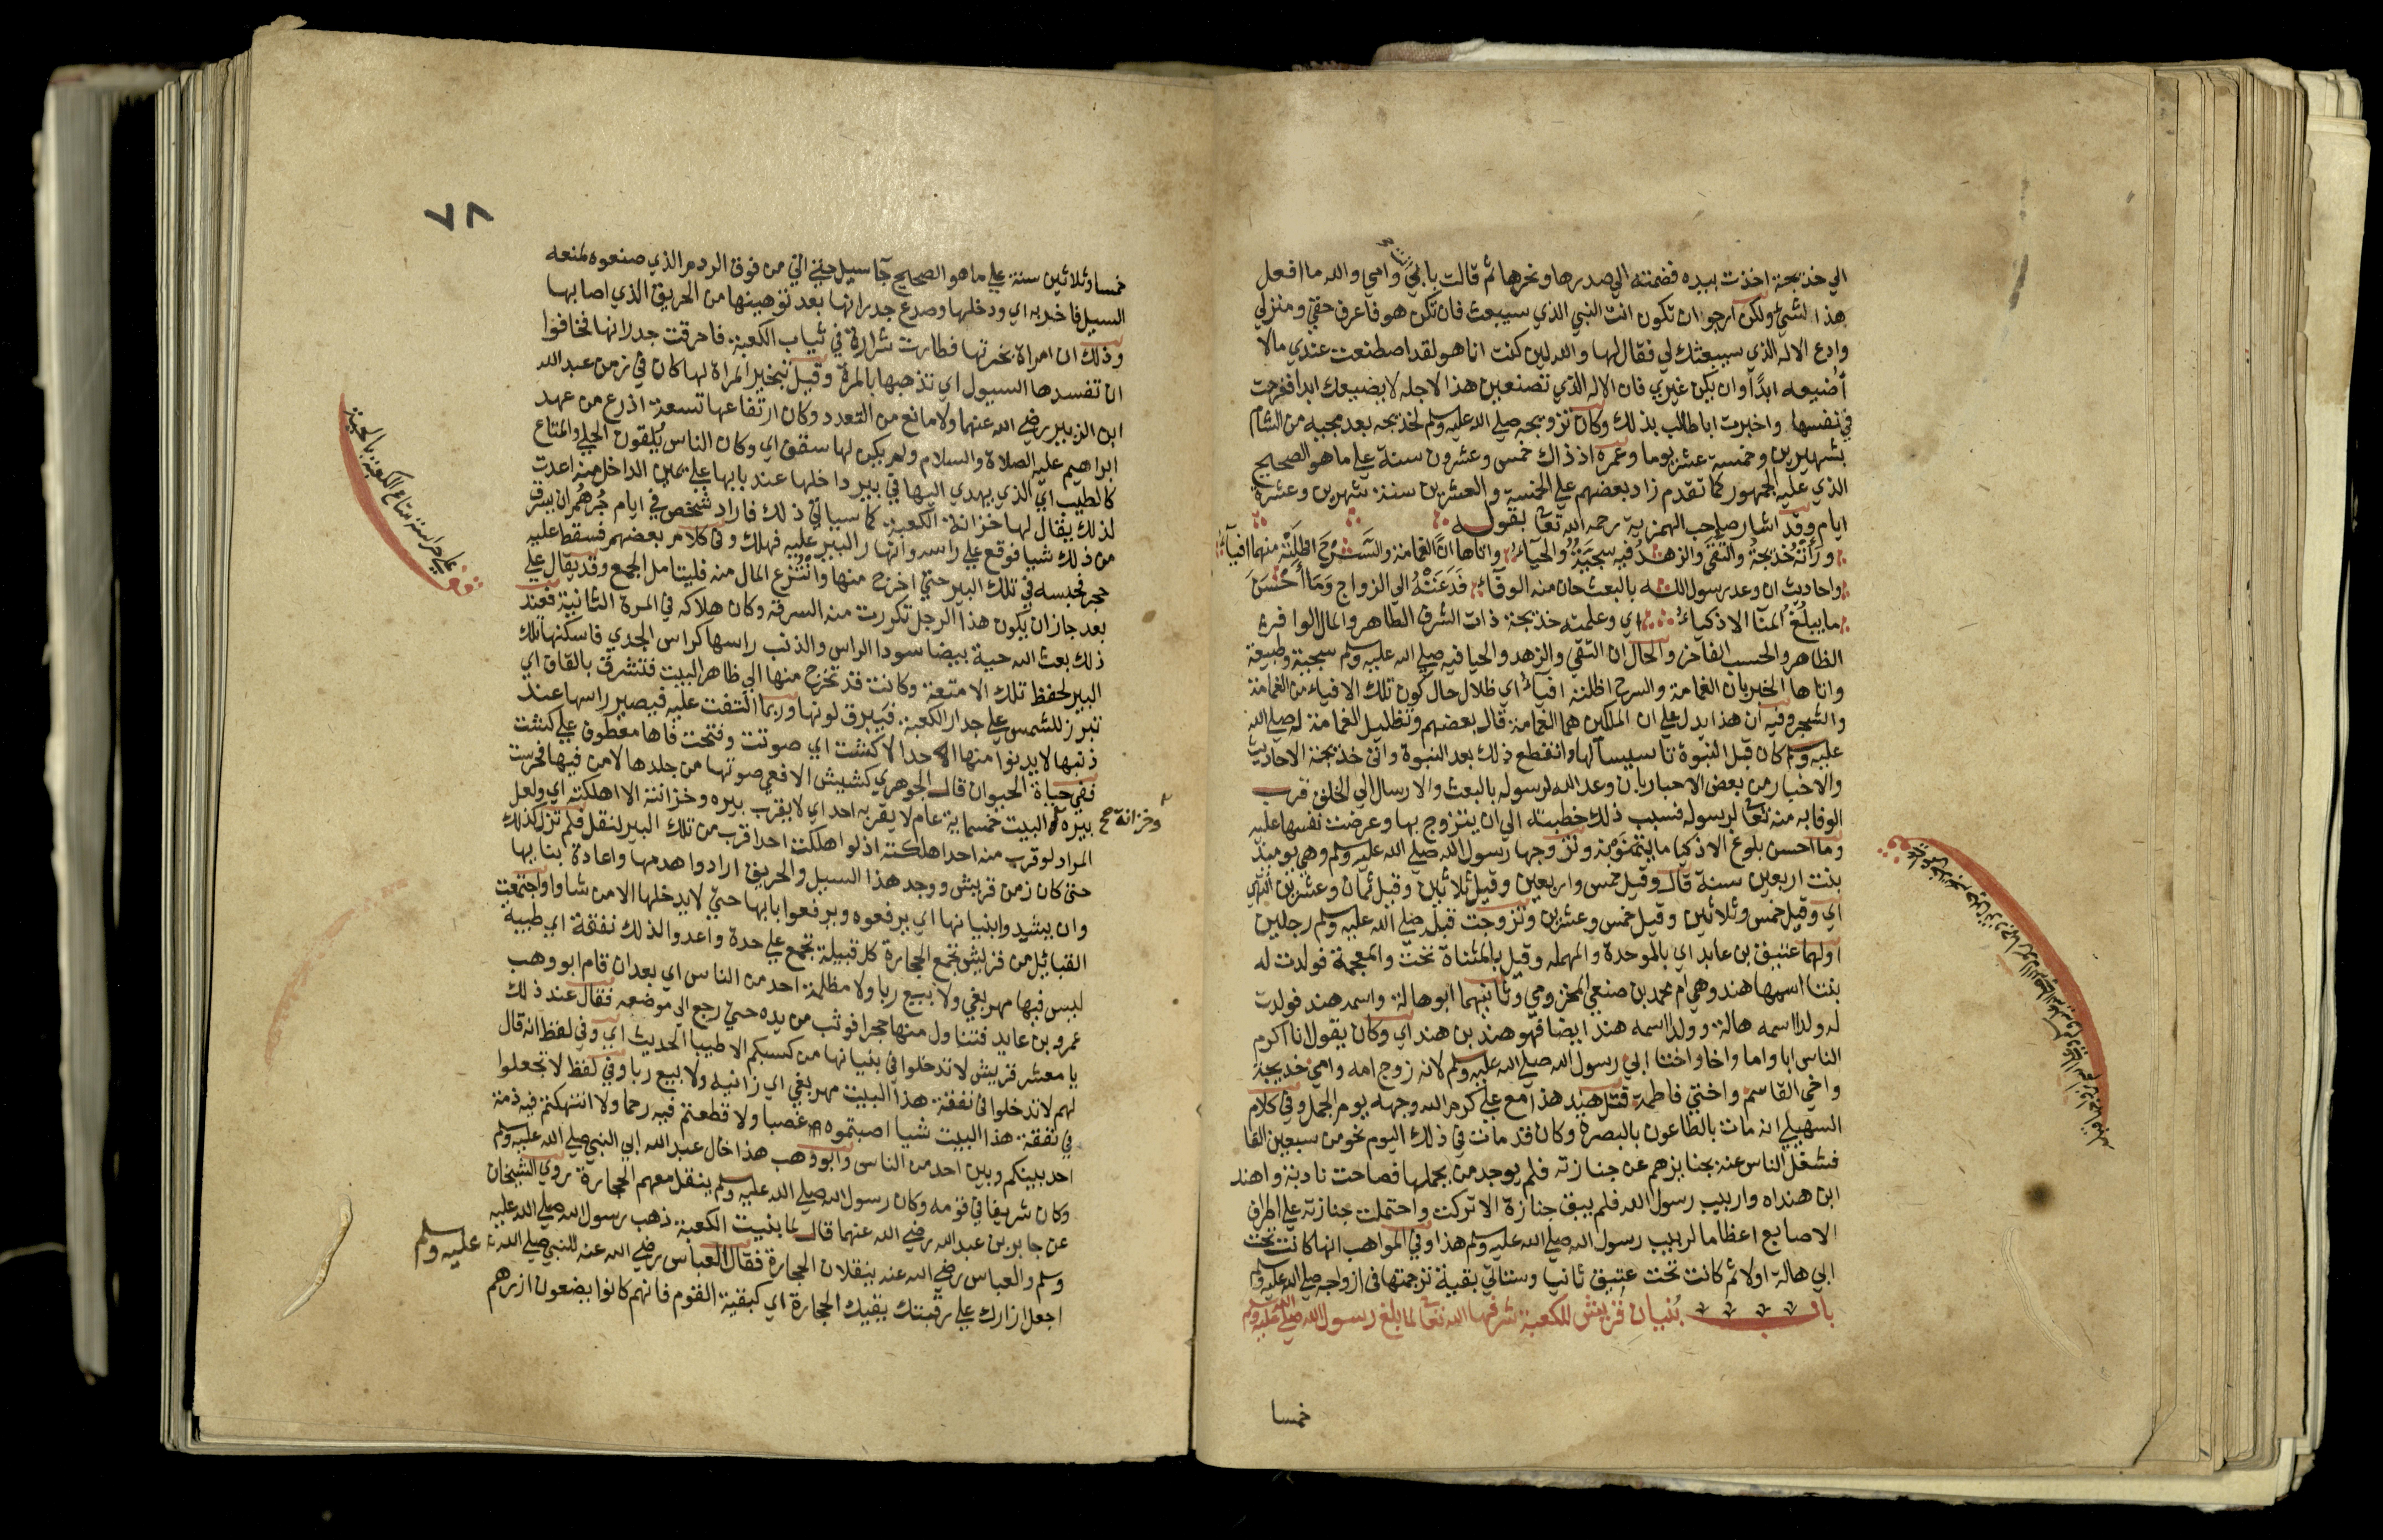 الي خديجة اخذت بيده فضمته الي صدرها ونحرها ثم قالت بابي وامي والله ما افعل
هذا لشئ ولكن ارجو ان تكون انت النبي الذي سيبعث فان تكن هو فاعرف حقي ومنزلي
وادع الاله الذي سيبعثك لي فقال لها والله لين كنت انا هو لقد اصطنعت عندي مالا
اضيعه ابدا وان يكن غيري فان الاله الذي تصنعين هذا لاجله لا يضيعك ابدا فخرجت
في نفسها واخبرت اباطالب بذلك وكان تزويجه صلي الله عليه وسلم لخديجه بعد مجيه من الشام
بشهرين وخمسة عشر يوما وعمره اذ ذاك خمس وعشرون سنة علي ما هو الصحيح
الذي عليه الجمهور كما تقدم زاد بعضهم علي الخمسة والعشرين سنة شهرين وعشرة
ايام وقد اشار صاحب الهمزية رحمه الله تعا بقوله
ورأته خديجة والتقى والزهد فيه سجية والحيآء واتاها ان الغمامة والسرح اظلته منهما افيآء
واحاديث ان وعد رسول الله بالبعث حان منه الوفآء فدعته الي الزواج وما أحسن
ما يبلغ المنا الاذكياء اي وعلمته خديجة ذات الشرف الطاهر والمال الوافر
الظاهر والحسب الفاخر والحال ان التقي والزهد والحيا فيه صلي الله عليه وسلم سجية وطبيعة
واتاها الخبر بان الغمامة والسرح اظلته افياء اي ظلال حال كون تلك الافياء من الغمامة
والشجر وفيه ان هذا يدل علي ان الملكين هما الغمامة قال بعضهم وتظليل الغمامة له صلي الله
عليه وسلم كان قبل النبوة تاسيسا لها وانقطع ذلك بعد النبوة واتي خديجة الاحاديث
والاخبار من بعض الاحبار بان وعد الله لرسوله بالبعث والارسال الي الخلق قرب
الوفا به منه تعا لرسوله فبسبب ذلك خطبته الي ان يتزوج بها وعرضت نفسها عليه
وما احسن بلوغ الاذكيا ما يتمنونه وتزوجها رسول الله صلي الله عليه وسلم وهي يوميذ
بنت اربعين سنة قال وقيل خمس واربعين وقيل ثلاثين وقيل ثمان وعشرين انتهي
اي وقيل خمس وثلاثين وقيل خمس وعشرين وتزوجت قبله صلي الله عليه وسلم رجلين
اولهما عتيق بن عابد اي بالموحدة والمهمله وقيل بالمثناة تحت والمعجمة فولدت له
بنتا اسمها هند وهي ام محمد بن صيفي المخزومي وثانيهما ابو هالة واسمه هند فولدت
له ولدا اسمه هالة وولدا اسمه هند ايضا فهو هند بن هند اي وكان يقول انا اكرم
الناس ابا واما واخا واختا ابي رسول الله صلي الله عليه وسلم لانه زوج امه وامي خديجة
واخي القاسم واختي فاطمة قتل هند هذا مع علي كرم الله وجهه يوم الجمل وفي كلام
السهيلي انه مات بالطاعون بالبصرة وكان قد مات في ذلك اليوم نحو من سبعين الفا
فشغل الناس عنه بجنايزهم عن جنازته فلم يوجد من يحملها فصاحت نادبته واهند
ابن هنداه واربيب رسول الله فلم يبق جنازة الا تركت واحتملت جنازته علي اطراف
الاصابع اعظاما لربيب رسول الله صلي الله عليه وسلم هذا وفي المواهب انها كانت تحت
ابي هالة اولا ثم كانت تحت عتيق ثانيا وستاتي بقية ترجمتها في ازواجه صلي الله عليه وسلم
باب بنيان قريش للكعبة شرفها الله تعا لما بلغ رسول الله صلي الله عليه وسلم
خمسا
٧٨
خمسا وثلاثين سنة علي ما هو الصحيح جآ سيل حتي اتي من فوق الردم الذي صنعوه لمنعه
السيل فاخربه اي ودخلها وصدع جدرانها بعد توهينها من الحريق الذي اصابها
وذلك ان امراة بخرتها فطارت شرارة في ثياب الكعبة فاحرقت جدرانها فخافوا
ان تفسدها السيول اي تذهبها بالمرة وقيل تبخير المراة لها كان في زمن عبد الله
ابن الزبير رضي الله عنهما ولا مانع من التعدد وكان ارتفاعها تسعة اذرع من عهد
ابراهيم عليه الصلاة والسلام ولم يكن لها سقف اي وكان الناس يلقون الحلي والمتاع
كالطيب اي الذي يهدي اليها في بير داخلها عند بابها علي يمين الداخل منه اعدت
لذلك يقال لها خزانة الكعبة كما سياتي ذلك فاراد شخص في ايام جرهم ان يسرق
من ذلك شيا فوقع علي راسه وانهار البير عليه فهلك وفي كلام بعضهم فسقط عليه
حجر فحبسه في تلك البير حتي اخرج منها وانتزع المال منه فليتامل الجمع وقد يقال علي
بعد جاز ان يكون هذا الرجل تكررت منه السرقة وكان هلاكه في المرة الثانية فعند
ذلك بعث الله حية بيضا سودا الراس والذنب راسها كراس الجدي فاسكنها تلك
البير لحفظ تلك الامتعة وكانت قد تخرج منها الي ظاهر البيت فتشرق بالقاف اي
تبرز للشمس علي جدار الكعبة فيبرق لونها وربما التفت عليه فيصير راسها عند
ذنبها لا يدنوا منها احد الا كشت اي صوتت وفتحت فاها معطوف علي كشت
ففي حياة الحيوان قال الجوهري كشيش الافعي صوتها من جلدها لا من فيها فحرست
بيره البيت خمسماية عام لا يقربه احد اي لا يقرب بيره وخزانته الا اهلكته اي ولعل
وخزانة صح
المراد لو قرب منه احد اهلكته اذ لو اهلكت احدا قرب من تلك البير لنقل فلم تزل كذلك
حتي كان زمن قريش ووجد هذا السيل والحريق ارادوا هدمها واعادة بنايها
وان يشيدوا بنيانها اي يرفعوه ويرفعوا بابها حتي لا يدخلها الا من شاوا واجتمعت
القبائل من قريش تجمع الحجارة كل قبيلة تجمع علي حدة واعدوا لذلك نفقة اي طيبة
ليس فيها مهر بغي ولا بيع ربا ولا مظلمة احد من الناس اي بعد ان قام ابو وهب
عمرو بن عايد فتناول منها حجرا فوثب من يده حتي رجع الي موضعه فقال عند ذلك
يا معشر قريش لا تدخلوا في بنيانها من كسبكم الا طيبا الحديث اي وفي لفظ انه قال
لهم لا تدخلوا في نفقة هذا البيت مهر بغي اي زانية ولا بيع ربا وفي لفظ لا تجعلوا
في نفقة هذا البيت شيا اصبتموه غصبا ولا قطعتم فيه رحما ولا انتهكتم فيه ذمة
احد بينكم وبين احد من الناس وابو وهب هذا خال عبد الله ابي النبي صلي الله عليه وسلم
وكان شريفا في قومه وكان رسول الله صلي الله عليه وسلم ينقل معهم الحجارة روي الشيخان
عن جابر بن عبد الله رضي الله عنهما قال لما بنيت الكعبة ذهب رسول الله صلي الله عليه
وسلم والعباس رضي الله عنه ينقلان الحجارة فقال العباس رضي الله عنه للنبي صلي الله عليه وسلم
اجعل ازارك علي رقبتك يقيك الحجارة اي كبقية القوم فانهم كانوا يضعون ازرهم